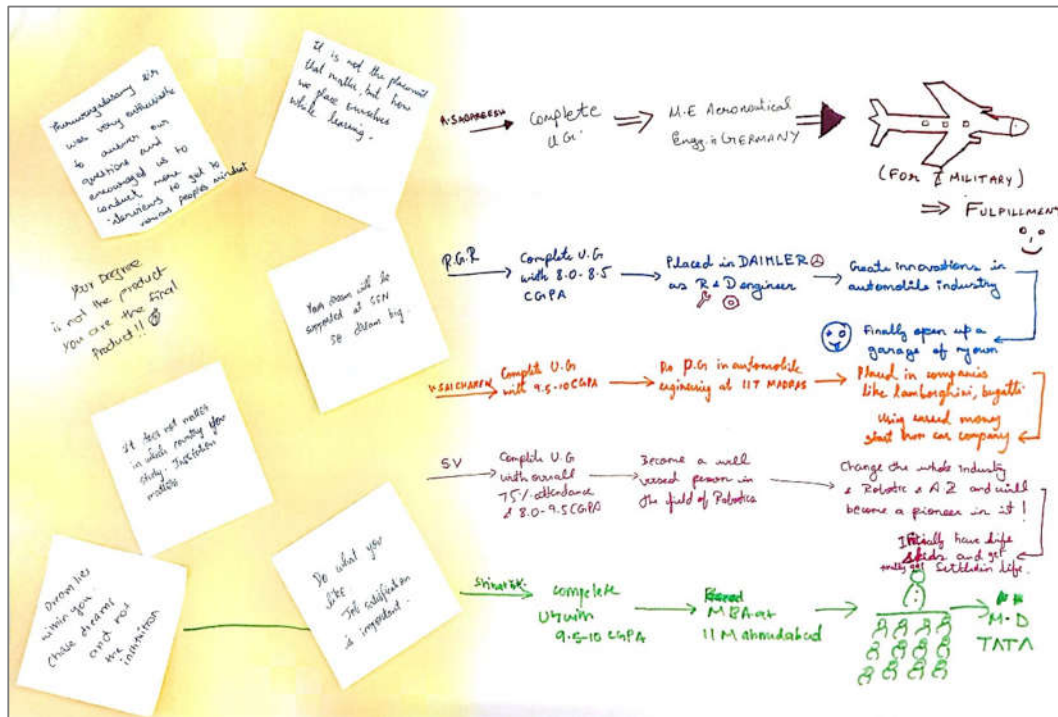 sir
was very enthusiastic
to answer our
questions and
encouraged us to
conduct more
interviews to get to
various peoples mindset
It is not the placement
that matter, but how
we place ourselves
while learning.
Your Degree
is not the product
You are the final
Product!!
Your dream will be
supported at SSN
so dream big.
It does not matter
in which country you
study. Institution
matters
Dream lies
within you
chase dreams
and not
the institution
Do what you
like
Job satisfaction
is important.
A.SABAREESH
Complete
U.G.
M.E Aeronautical
Engg. in GERMANY
(FOR MILITARY)
FULFILLMENT
R.G.R
Complete U.G
with 8.0-8.5
CGPA
Placed in DAIMLER
as R & D engineer
Create innovations in
automobile industry
Finally open up a
garage of my own
V.SAICHARAN
Complete U.G
with 9.5-10 CGPA
Do P.G in automobile
enginering at IIT MADRAS
Placed in companies
like lamborghini, bugatti
Using earned money
start own car company
SV
Complete U.G
with overall
75% attendance
& 8.0-9.5 CGPA
Become a well
versed person in
the field of Robotics
Change the whole industry
& Robotic & A I and will
become a pioneer in it!
Finally have life
kids and get
Settled in life.
complete
UG with
9.5-10 CGPA
MBA at
IIM ahmudabad
M.D
TATA